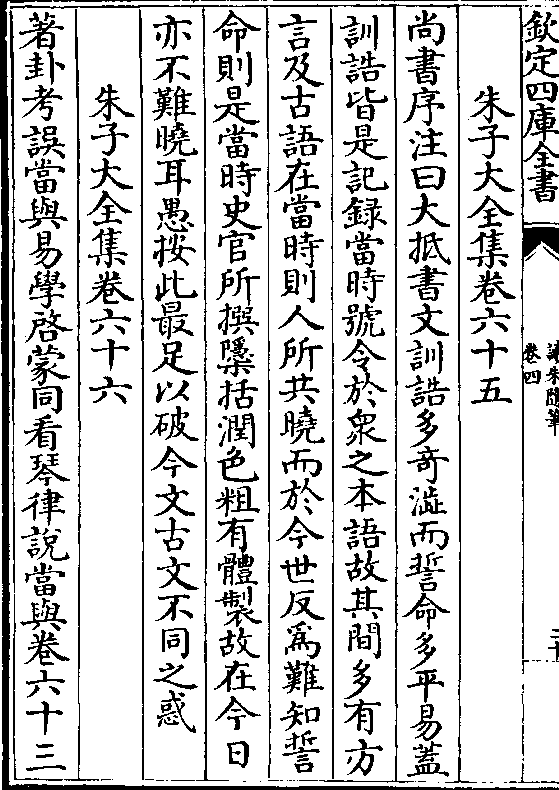 欽定四庫全書
讀朱隨筆
卷四
朱子大全集卷六十五
尚書序注曰大抵書文訓誥多竒澁而誓命多平易蓋
訓誥皆是記録當時號令於衆之本語故其間多有方
言及古語在當時則人所共曉而於今世反爲難知誓
命則是當時史官所撰櫽括潤色粗有體製故在今日
亦不難曉耳愚按此最足以破今文古文不同之惑
朱子大全集卷六十六
蓍卦考誤當與易學啓蒙同看琴律說當與卷六十三